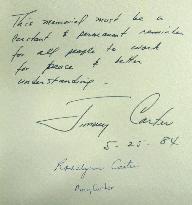 This memorial must be a
constant & permanent reminder
for all people to work
for peace & better
understanding.
Jimmy Carter
5-25-84
Rosalynn Carter
Amy Carter